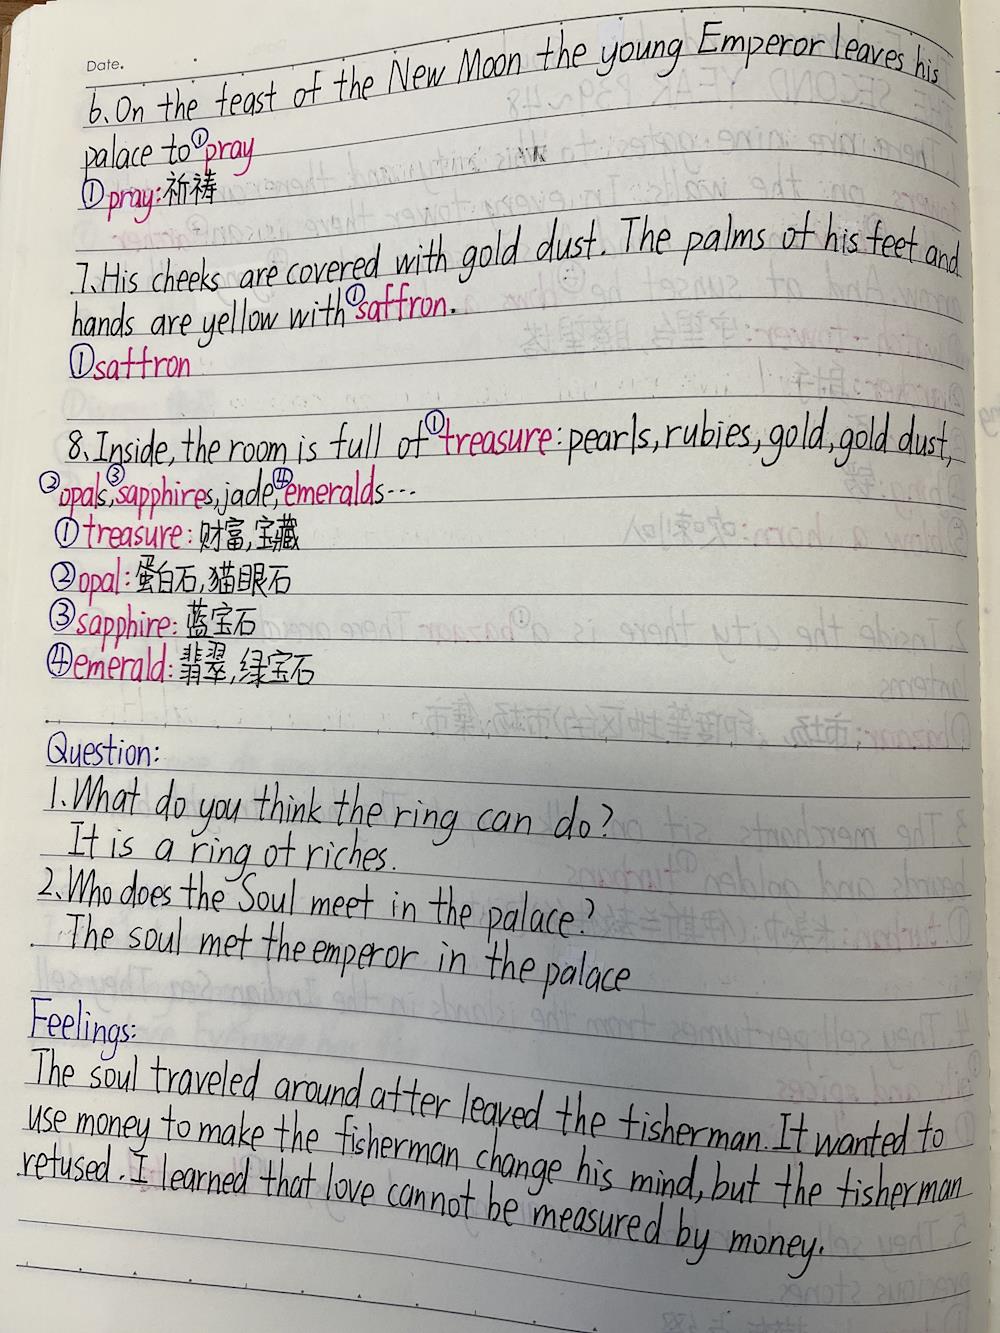 Date.
6. On the feast of the New Moon the young Emperor leaves his
palace to ①pray
① pray: 祈祷
7. His cheeks are covered with gold dust. The palms of his feet and
hands are yellow with ①saffron.
① saffron
8. Inside, the room is full of ①treasure: pearls, rubies, gold, gold dust,
②opals, ③sapphires, jade, ④emeralds...
① treasure: 财富,宝藏
② opal: 蛋白石,猫眼石
③ sapphire: 蓝宝石
④ emerald: 翡翠,绿宝石
Question:
1. What do you think the ring can do?
It is a ring of riches.
2. Who does the Soul meet in the palace?
The soul met the emperor in the palace
Feelings:
The soul traveled around after leaved the fisherman. It wanted to
use money to make the fisherman change his mind, but the fisherman
refused. I learned that love cannot be measured by money.